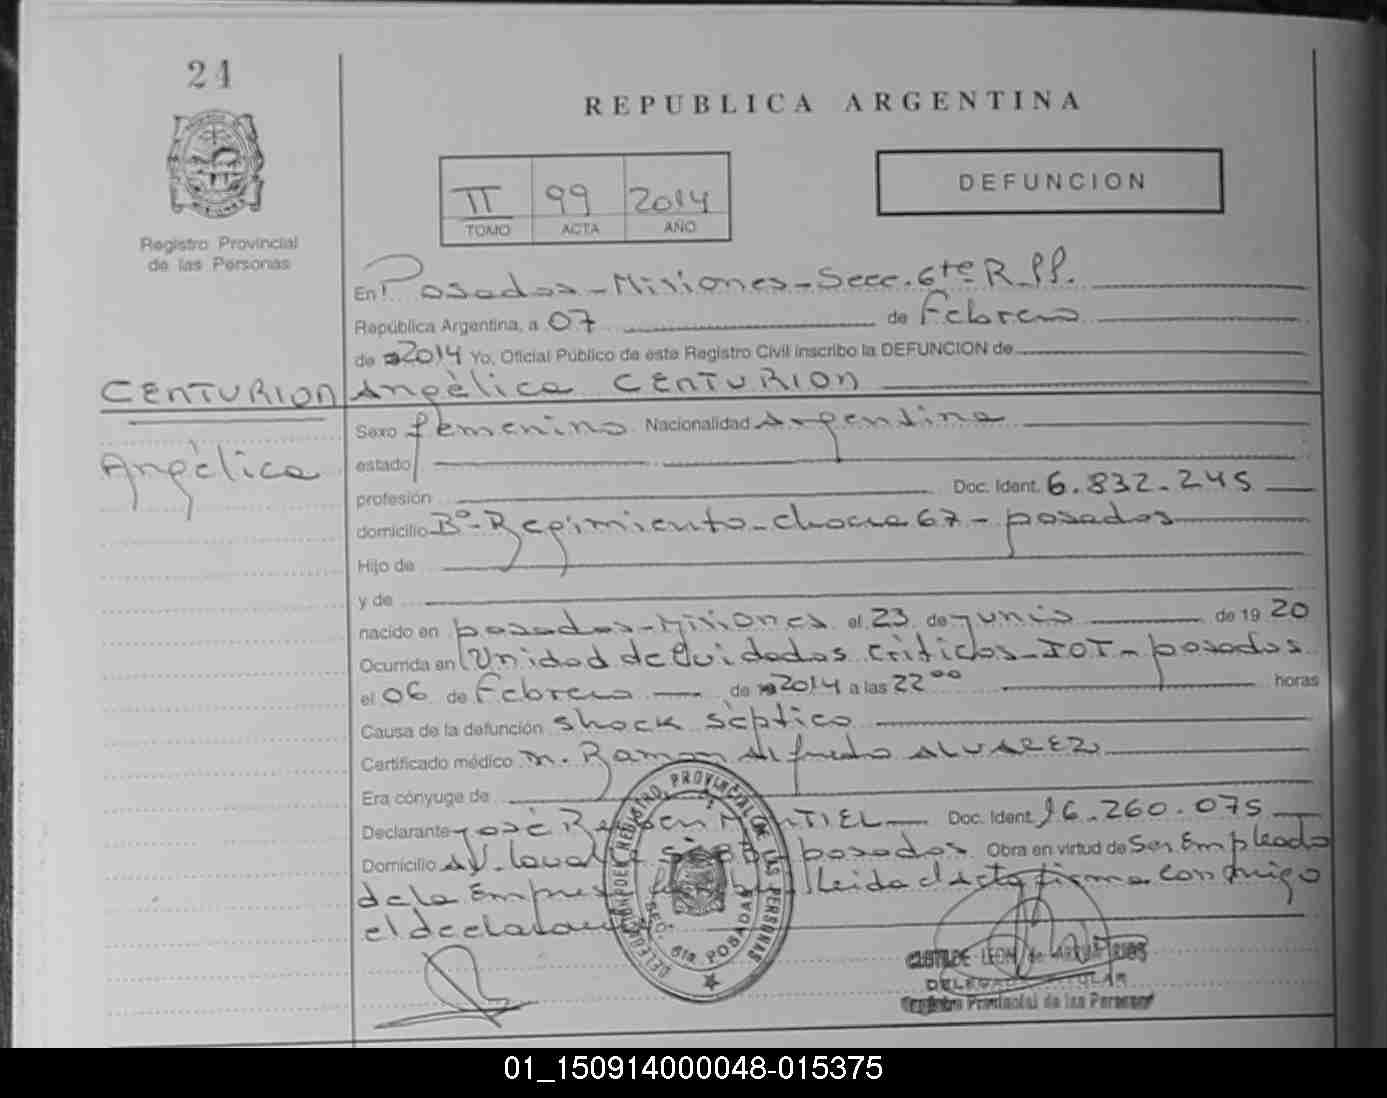 24
REPUBLICA ARGENTINA
II 99 2014
TOMO ACTA AÑO
DEFUNCION
Registro Provincial
de las Personas
En Posadas - Misiones - Secc. 6te R.PP.
República Argentina, a 07 de Febrero
de 2014 Yo, Oficial Público de este Registro Civil inscribo la DEFUNCION de
CENTURION Angèlica CENTURION
Angèlica
Sexo femenino Nacionalidad Argentina
estado
profesión Doc. Ident. 6.832.245
domicilio Bº - Regimiento - chacra 67 - posadas
Hijo de
y de
nacido en posadas - Misiones el 23 de Junio de 19 20
Ocurrida en Unidad de Cuidados Criticos - IOT - posadas
el 06 de Febrero de 2014 a las 22 00 horas
Causa de la defunción shock sèptico
Certificado médico M. Ramon Alfredo ALVAREZ
Era cónyuge de
Declarante José MONTIEL Doc. Ident. 16.260.075
Domicilio AV. Lavalle posadas Obra en virtud de Ser Empleado
de la Empresa Leida el acta firma conmigo
el declarante
REGISTRO PROVINCIAL DE LAS PERSONAS
SEC. 6ta POSADAS
CLOTILDE LEON de
DELEGADA TITULAR
Registro Provincial de las Personas
01_150914000048-015375